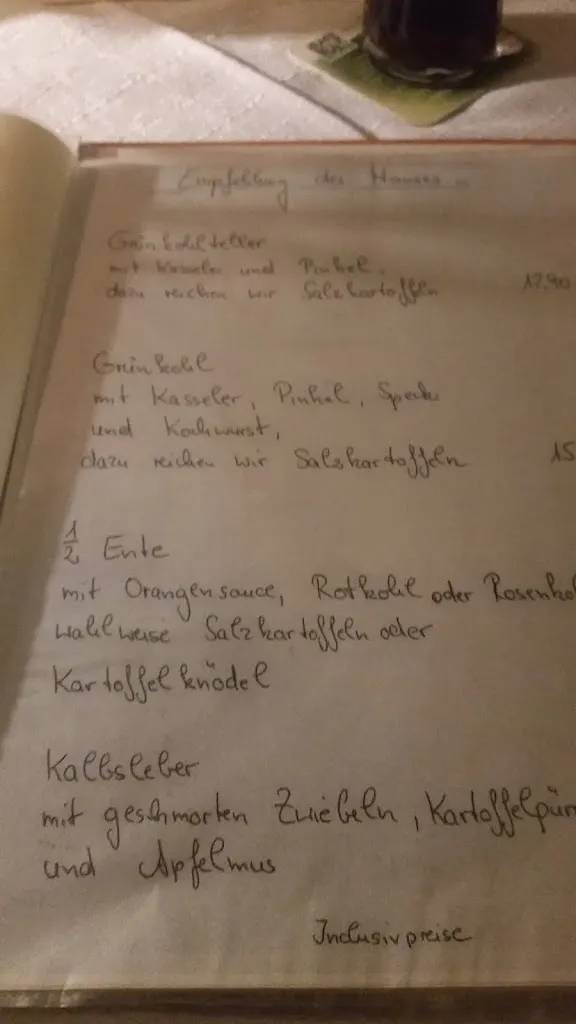 Empfehlung des Hauses
Grünkohlteller
mit Kasseler und Pinkel,
dazu reichen wir Salzkartoffeln 12,90
Grünkohl
mit Kasseler, Pinkel, Speck
und Kochwurst,
dazu reichen wir Salzkartoffeln 15
1/2 Ente
mit Orangensauce, Rotkohl oder Rosenko
wahlweise Salzkartoffeln oder
Kartoffelknödel
Kalbsleber
mit geschmorten Zwiebeln, Kartoffelpür
und Apfelmus
Inclusivpreise